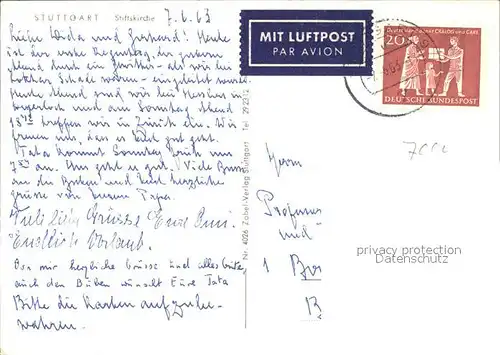 STUTTGART Stiftskirche
7.6.63
MIT LUFTPOST
PAR AVION
20
DEUTSCHE BUNDESPOST
Heute
ist der erste Regentag, der gestern
Abend durch ein Gewitter - als wir bei
waren - eingeleitet
Abend sind wir in
und am Sonntag Abend
treffen wir in Zürich ein. Wir
freuen uns, dass es Euch gut geht.
Tata kommt Sonntag früh um
an. Uns geht es gut. Viele
an die Buben und Euch herzliche
Grüsse von Eurem Papa.
Viele liebe Grüsse Eure Omi.
Endlich Urlaub.
Von mir herzliche Grüsse und alles Gute
auch den Buben wünscht Eure Tata
Bitte die Karten aufzube-
wahren.
Nr. 4026 Zobel-Verlag Stuttgart Tel. 29 23 12
Herrn
Professor
und
1 Bos
R
privacy protection
Datenschutz